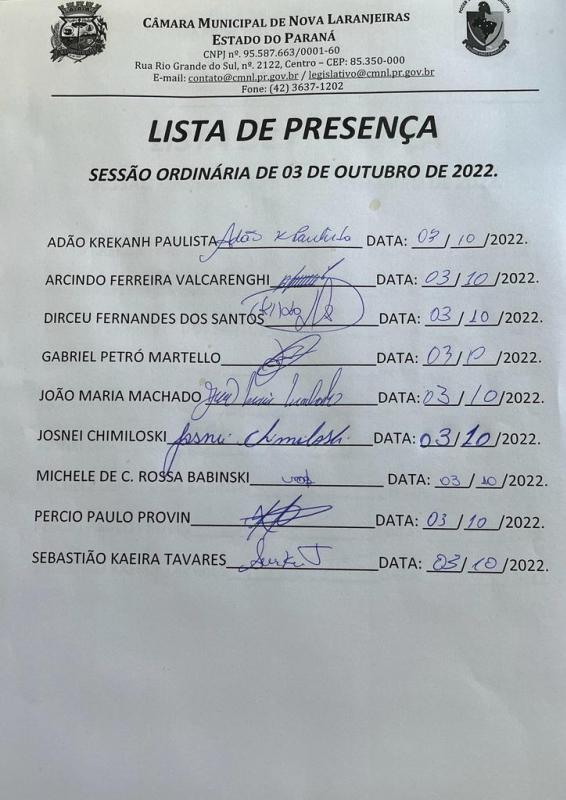 CÂMARA MUNICIPAL DE NOVA LARANJEIRAS
ESTADO DO PARANÁ
CNPJ nº. 95.587.663/0001-60
Rua Rio Grande do Sul, nº. 2122, Centro – CEP: 85.350-000
E-mail: contato@cmnl.pr.gov.br / legislativo@cmnl.pr.gov.br
Fone: (42) 3637-1202
LISTA DE PRESENÇA
SESSÃO ORDINÁRIA DE 03 DE OUTUBRO DE 2022.
ADÃO KREKANH PAULISTA Adão K Paulista DATA: 03/10/2022.
ARCINDO FERREIRA VALCARENGHI DATA: 03/10/2022.
DIRCEU FERNANDES DOS SANTOS DATA: 03/10/2022.
GABRIEL PETRÓ MARTELLO DATA: 03/10/2022.
JOÃO MARIA MACHADO DATA: 03/10/2022.
JOSNEI CHIMILOSKI Josnei Chimiloski DATA: 03/10/2022.
MICHELE DE C. ROSSA BABINSKI DATA: 03/10/2022.
PERCIO PAULO PROVIN DATA: 03/10/2022.
SEBASTIÃO KAEIRA TAVARES DATA: 03/10/2022.